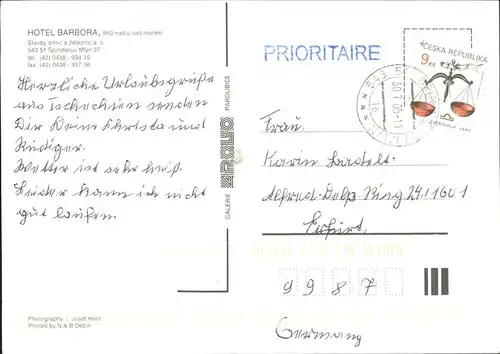 HOTEL BARBORA, 950 metrů nad mořem
Stavby silnic a železnic a. s.
543 51 Špindlerův Mlýn 37
tel (42) 0438 - 934 15
fax (42) 0438 - 937 36
Herzliche Urlaubsgrüße
aus Tschechien senden
Dir Deine Christa und
Rüdiger.
Wetter ist sehr heiß.
Leider kann ich nicht
gut laufen.
Photography | Josef Hanz
Printed by N & B Děčín
GALERIE APOLLO PARDUBICE
PRIORITAIRE
ČESKÁ REPUBLIKA
9 Kč
Frau
Karin
Alfred-Delp-Ring 24/1601
Erfurt
9 9 8 7
Germany